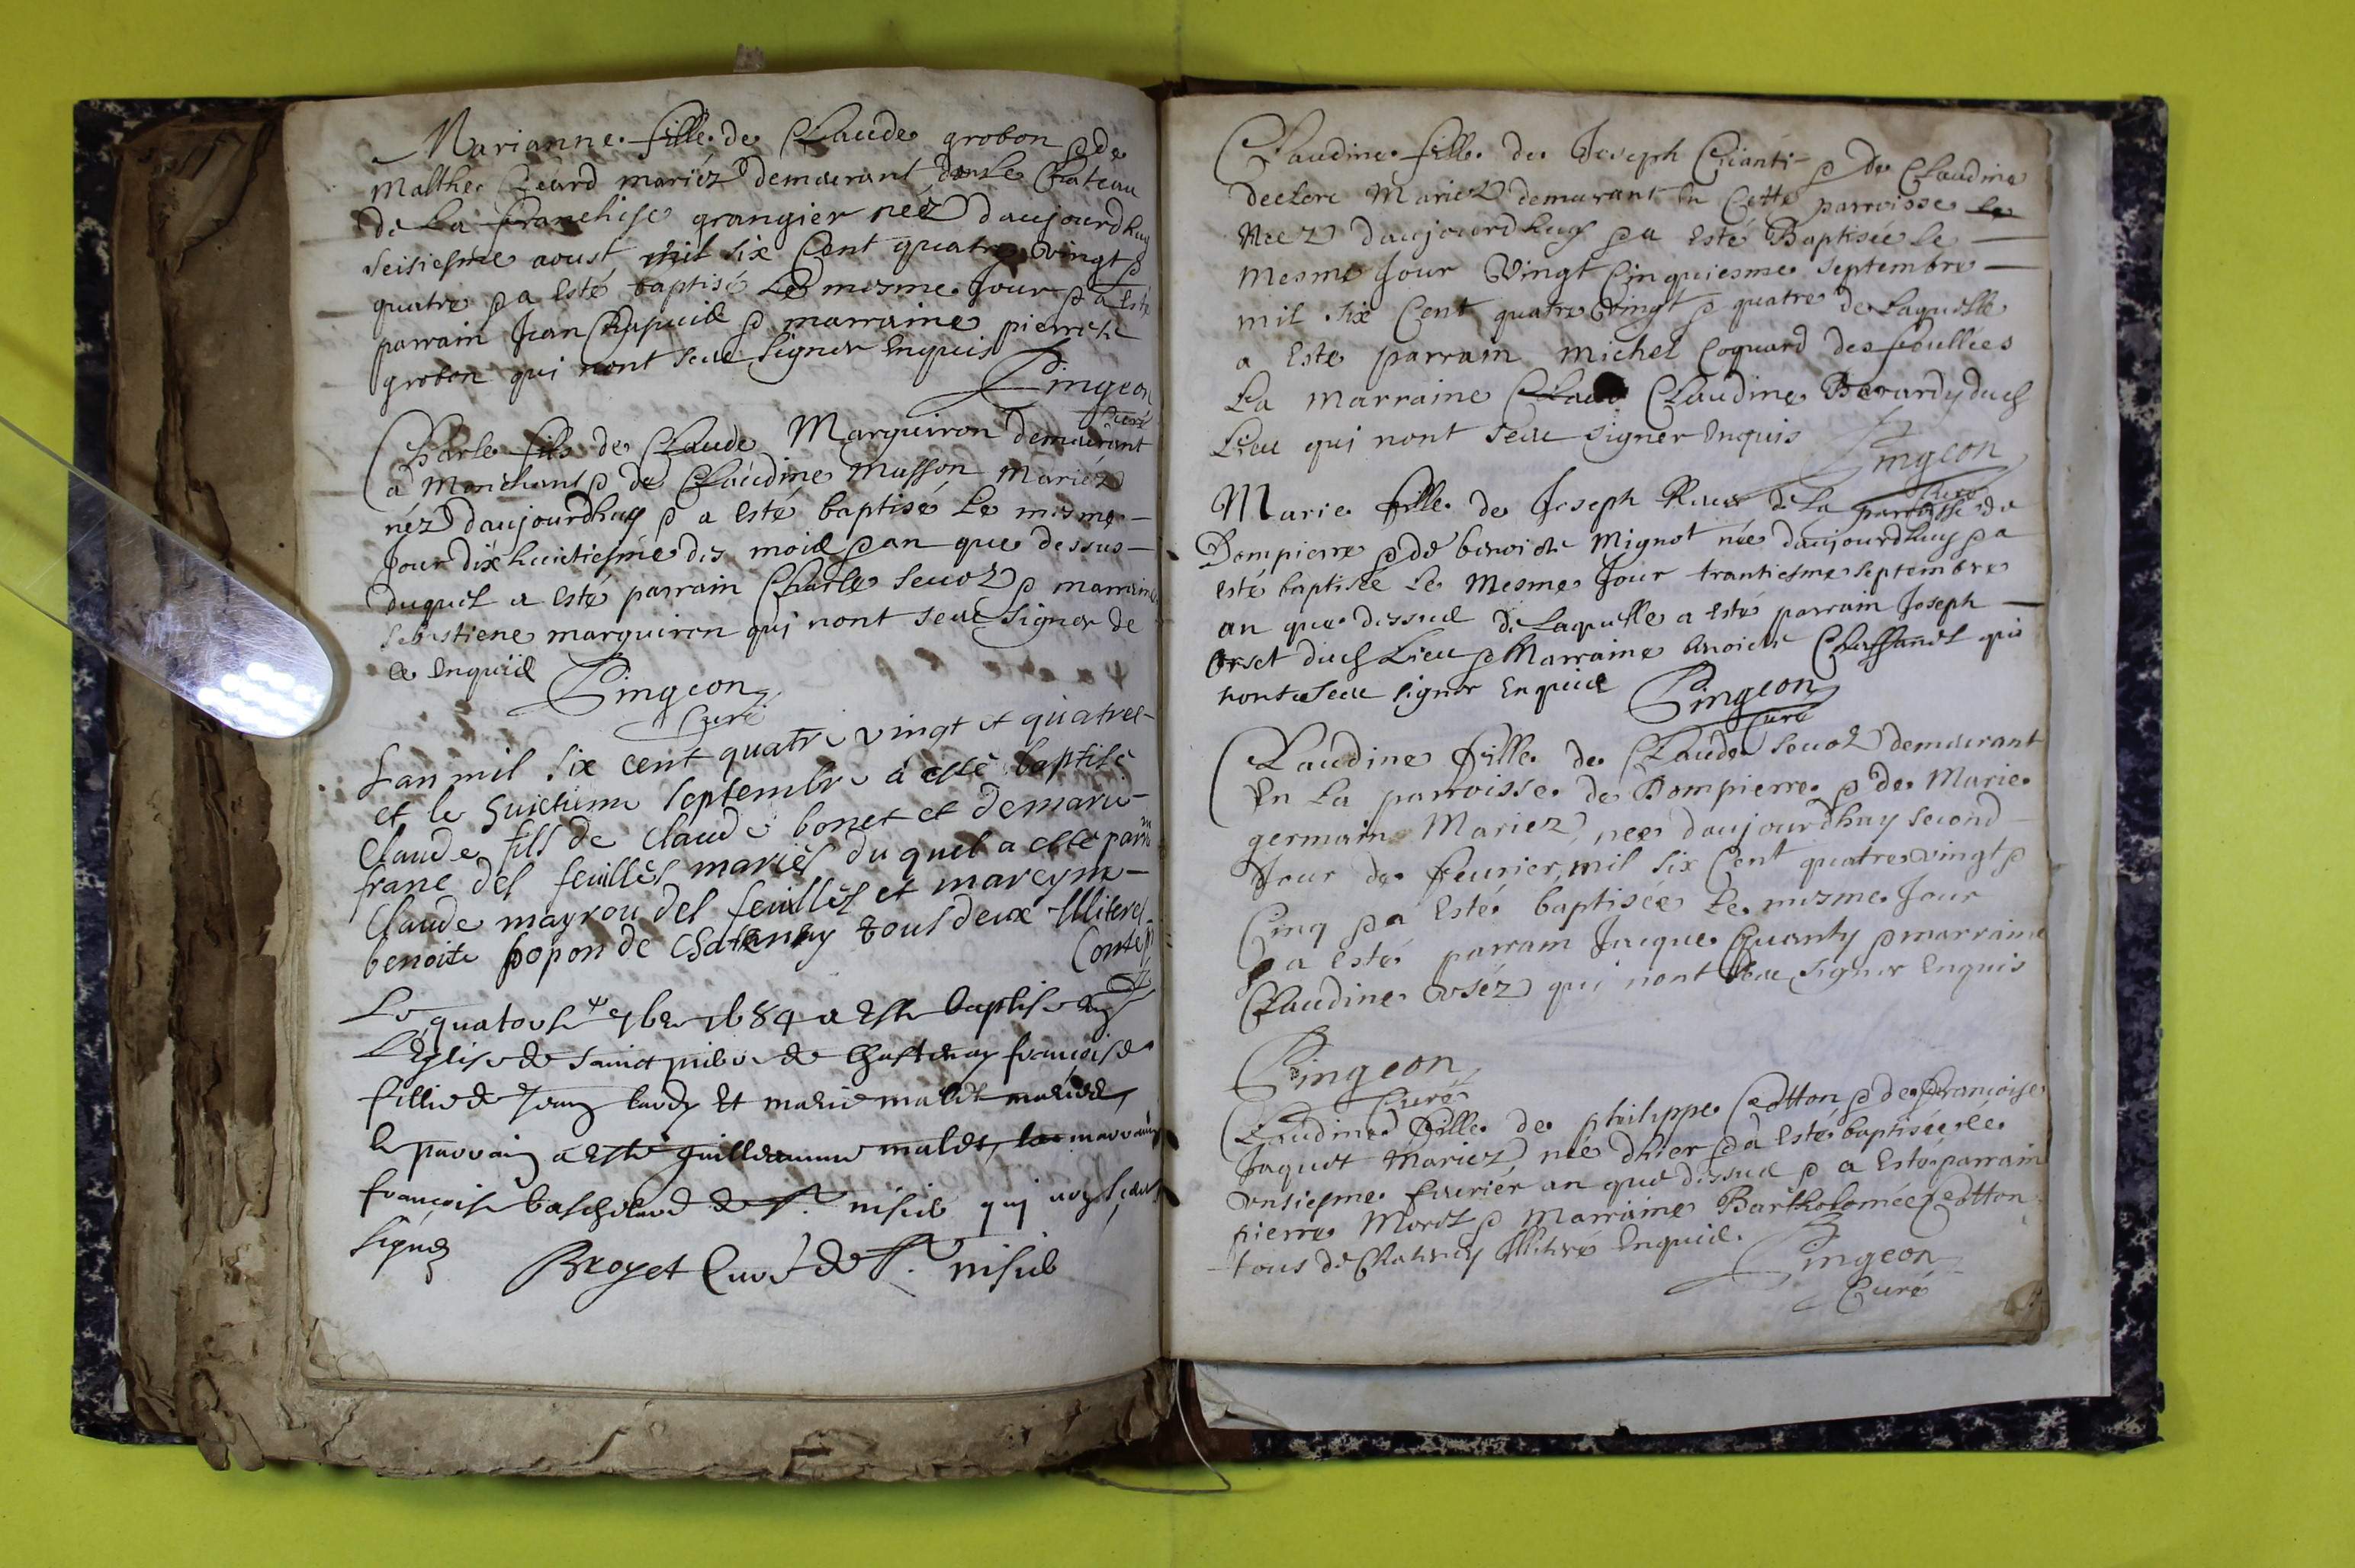 Marianne fille de Claude grobon & de
Malthe Cléard mariéz demeurant dans le Chateau
de La franchise grangier neé daujourdhuy
seisiesme aoust mil six Cent quatre vingt &
quatre & a esté baptisé Le mesme Jour & a esté
parrain Jean Chapuid & marraine pierrette
grobon qui nont seue signer Enquis
Pingeon
Curé
Charle fils de Claude Marguiron demeurant
a Monchant & de Claudine Musson Mariéz
néz daujourdhuy & a esté baptisé Le mesme
Jour dix huictiesme des moid & an que dessus
duquel a esté parrain Charle Seuoz & marraine
sebastiene marguiron qui nont seue signer de
ce Enquid
Pingeon
Curé
Lan mil six cent quatre vingt et quatre
et le huictieme septembre a esté baptisé
Claude fils de Claude bonet et de marie
franc des feuilles mariés du quel a esté parrin
Claude mayrou des feuilles et mareyne
benoite popon de Chatenay tous deux Illiteres
Le quatorse 7bre 1684 a Este baptisé en
L'église de Sainct pierre de Chastenay françoise
fillie de Jean lardy Et marie malet mariéd
le parrain a Esté guilleaume malet, la marraine
françoise baschelard de St. nisié qui nont sceu
signer
Broyet Curé de St. nisié
Claudine fille de Joseph Crianti & de Claudine
declerc Mariez demeurant En Cette parroisse le
Neez daujourdhuy & a esté Baptisée Le
Mesme Jour Vingt Cinquiesme septembre
mil six Cent quatre Vingt & quatre de Laquelle
a Esté parrain Michel Coquard des foullies
La Marraine Clau Claudine Berardy duch
Lieu qui nont seue signer Enquis
Pingeon
Curé
Marie fille de Joseph Roux de La parroisse de
Dompierre & de benoiste Mignot née daujourdhuy & a
esté baptisée Le Mesme Jour trantiesme septembre
an que dessud de Laquelle a esté parrain Joseph
Orset duch Lieu & Marraine benoiste Chassanet qui
nont seue signer Enquid
Pingeon
Curé
Claudine fille de Claude Seuoz demeurant
En La parroisse de Dompierre & de Marie
germain Mariez, nee daujourdhuy second
Jour de feurier, mil six Cent quatre vingt &
Cinq & a Esté baptisée Le mesme Jour
& a esté parrain Jacque Quanty & marraine
Claudine oséz qui nont seue signer Enquis
Pingeon
Curé
Claudine fille de philippe Cotton & de françoise
Jaquet Mariez, née dhier & a esté baptisée Le
onsiesme feurier an que dessud & a Esté parrain
pierre Morel & Marraine Bartholomée Cotton
tous de Chatenay Illiteré Enquid.
Pingeon
Curé